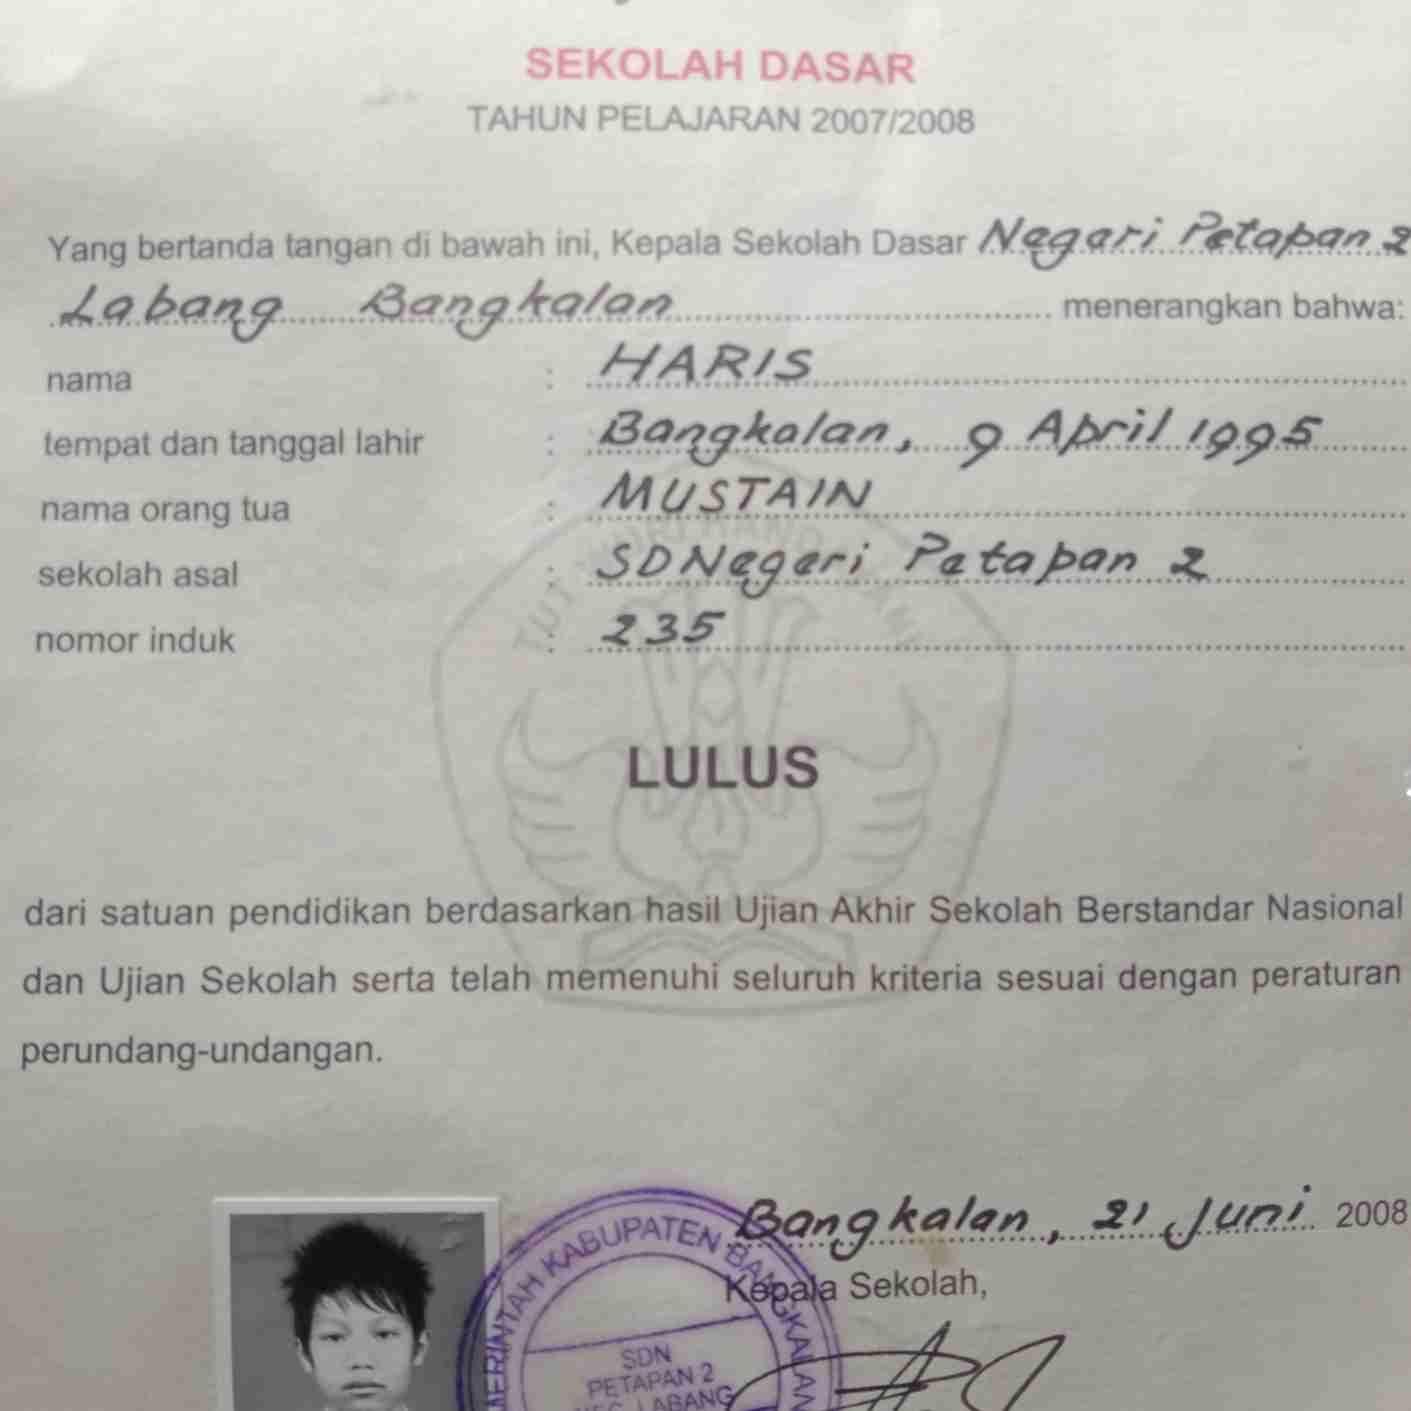 SEKOLAH DASAR
TAHUN PELAJARAN 2007/2008
Yang bertanda tangan di bawah ini, Kepala Sekolah Dasar Negeri Petapan 2
Labang Bangkalan menerangkan bahwa:
nama : HARIS
tempat dan tanggal lahir : Bangkalan, 9 April 1995
nama orang tua : MUSTAIN
sekolah asal : SDNegeri Petapan 2
nomor induk : 235
TUT WURI HANDAYANI
LULUS
dari satuan pendidikan berdasarkan hasil Ujian Akhir Sekolah Berstandar Nasional
dan Ujian Sekolah serta telah memenuhi seluruh kriteria sesuai dengan peraturan
perundang-undangan.
Bangkalan, 21 Juni 2008
Kepala Sekolah,
MERINTAH KABUPATEN BANGKALAN
SDN
PETAPAN 2
KEC. LABANG